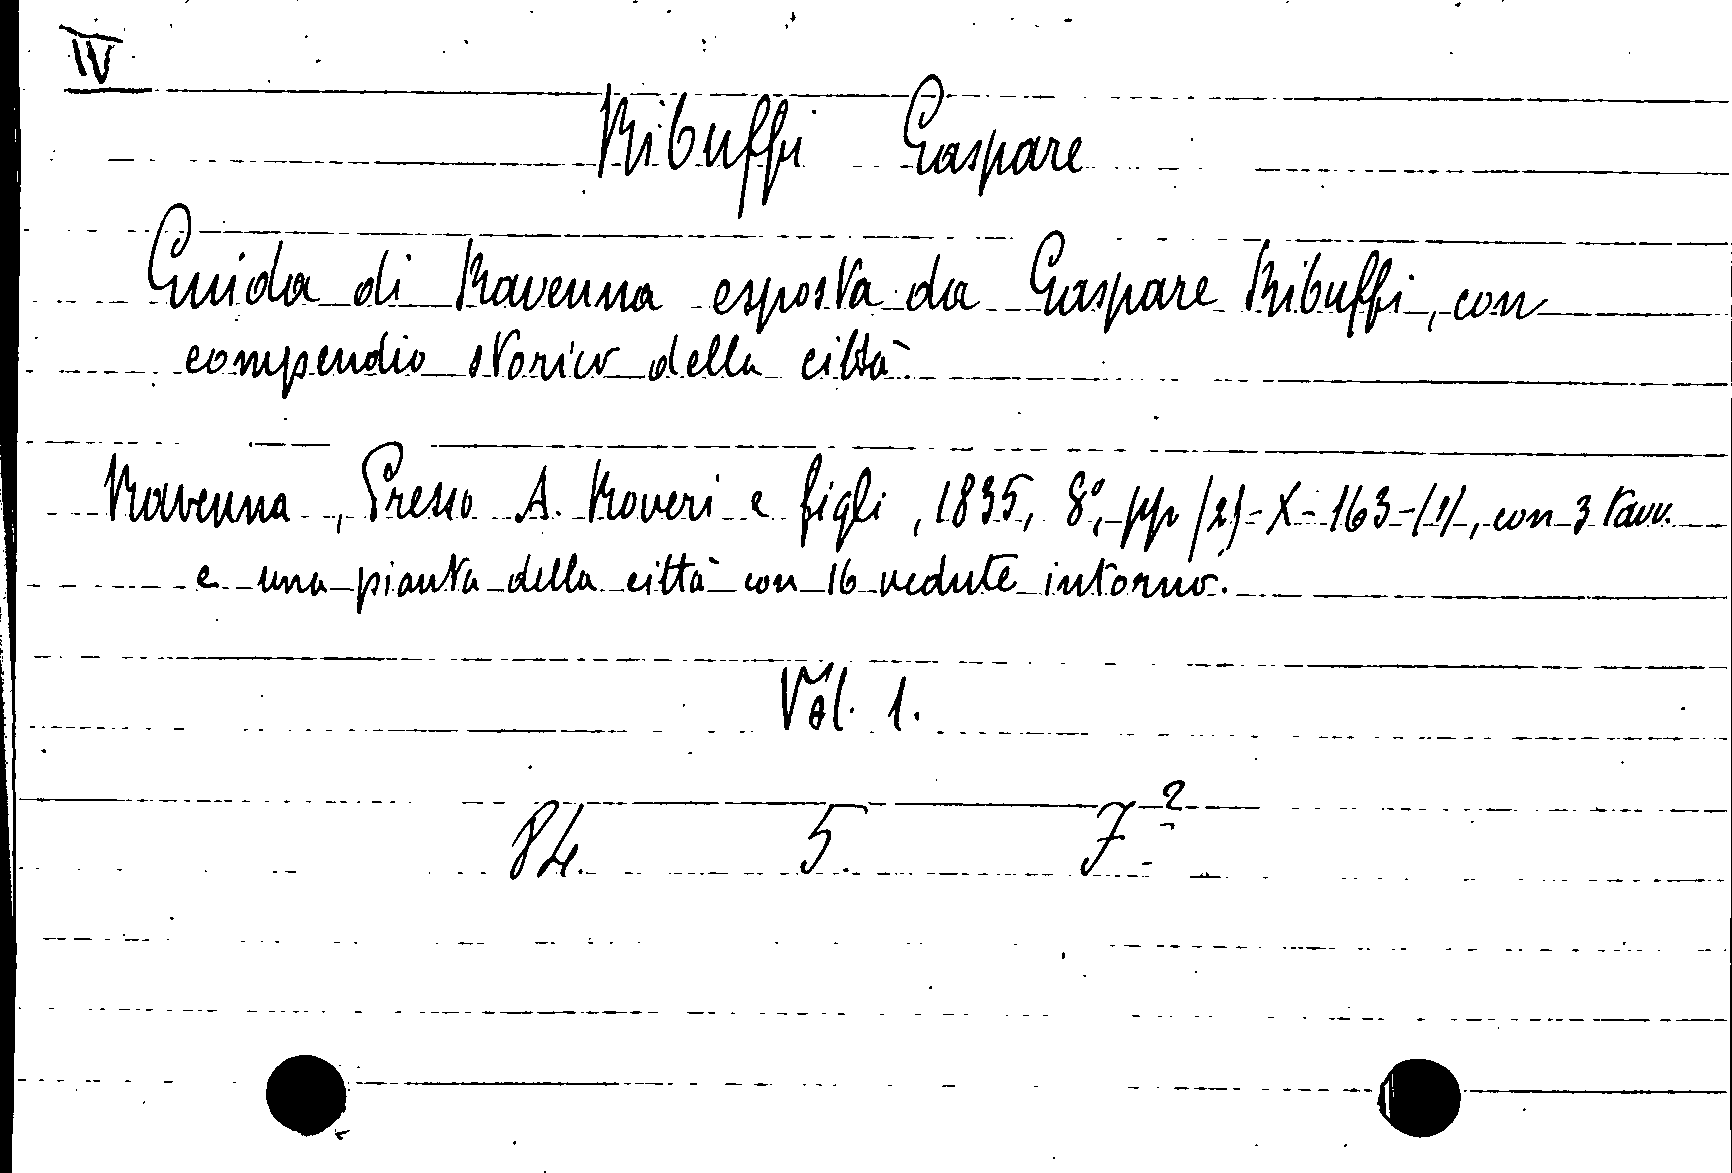 IV
Ribuffi Gaspare
Guida di Ravenna esposta da Gaspare Ribuffi, con
compendio storico della città
Ravenna, Presso A. Roveri e figli, 1835, 8°, pp (2)-X-163-(1), con 3 tavv.
e una pianta della città con 16 vedute intorno.
Vol. 1.
84. 5. 7²